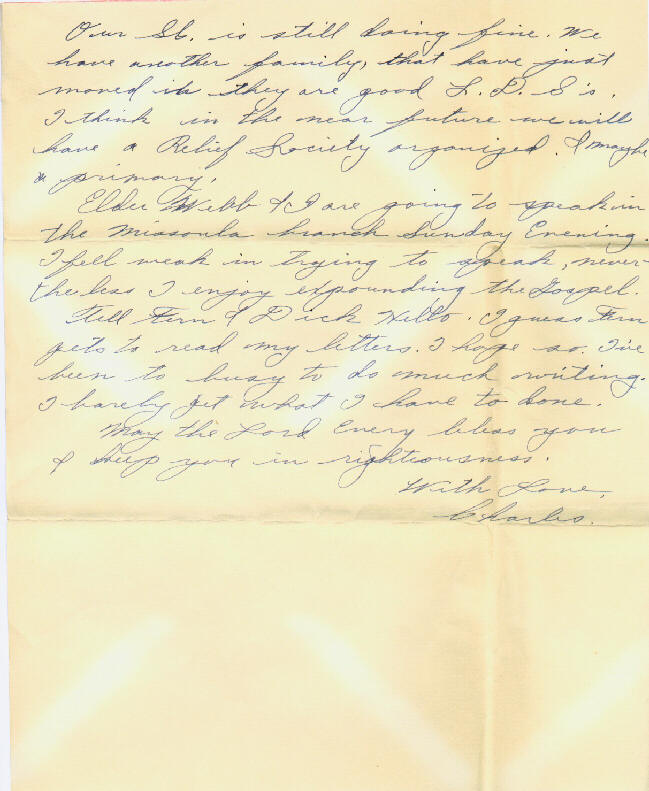 Our SS. is still doing fine. We
have another family, that have just
moved in they are good L. D. S's.
I think in the near future we will
have a Relief Society organized. & maybe
a primary.
Elder Webb & I are going to speak in
the Missoula branch Sunday Evening.
I fell weak in trying to speak, never-
the less I enjoy expounding the Gospel.
Tell Fern & Dick Hello. I guess Fern
gets to read my letters. I hope so. I've
been to busy to do much writing.
I barely get what I have to done.
May the Lord Every bless you
& keep you in righteousness.
With Love,
Charles.